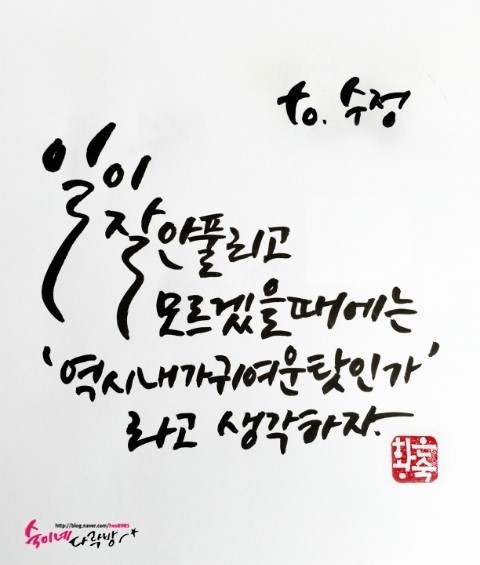 to. 수정
일이
잘 안풀리고
모르겠을때에는
'역시내가귀여운탓인가'
라고 생각하자.
황은숙
http://blog.naver.com/hes8985
숙이네다락방